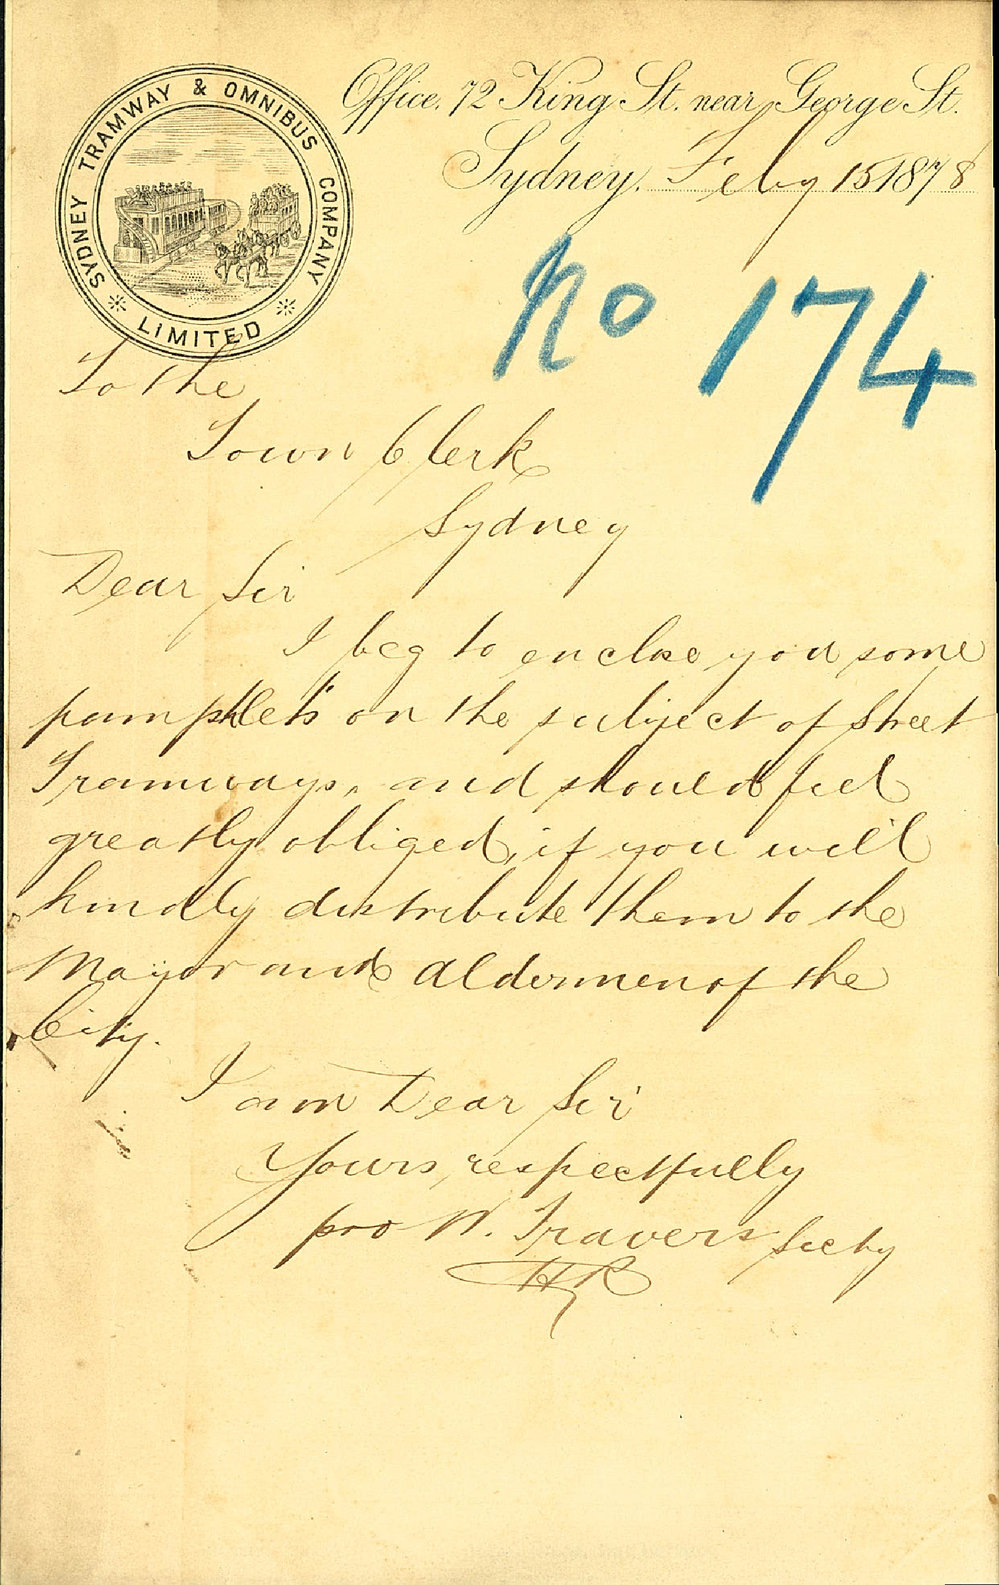 SYDNEY TRAMWAY & OMNIBUS COMPANY
LIMITED
Office. 72 King St. near George St.
Sydney. Feby 15 1878
No 174
To the
Town Clerk
Sydney
Dear Sir
I beg to enclose you some
pamphlets on the subject of Street
Tramways, and should feel
greatly obliged, if you will
kindly distribute them to the
Mayor and Aldermen of the
City.
I am Dear Sir
Yours respectfully
pro W. Travers Secty
HR